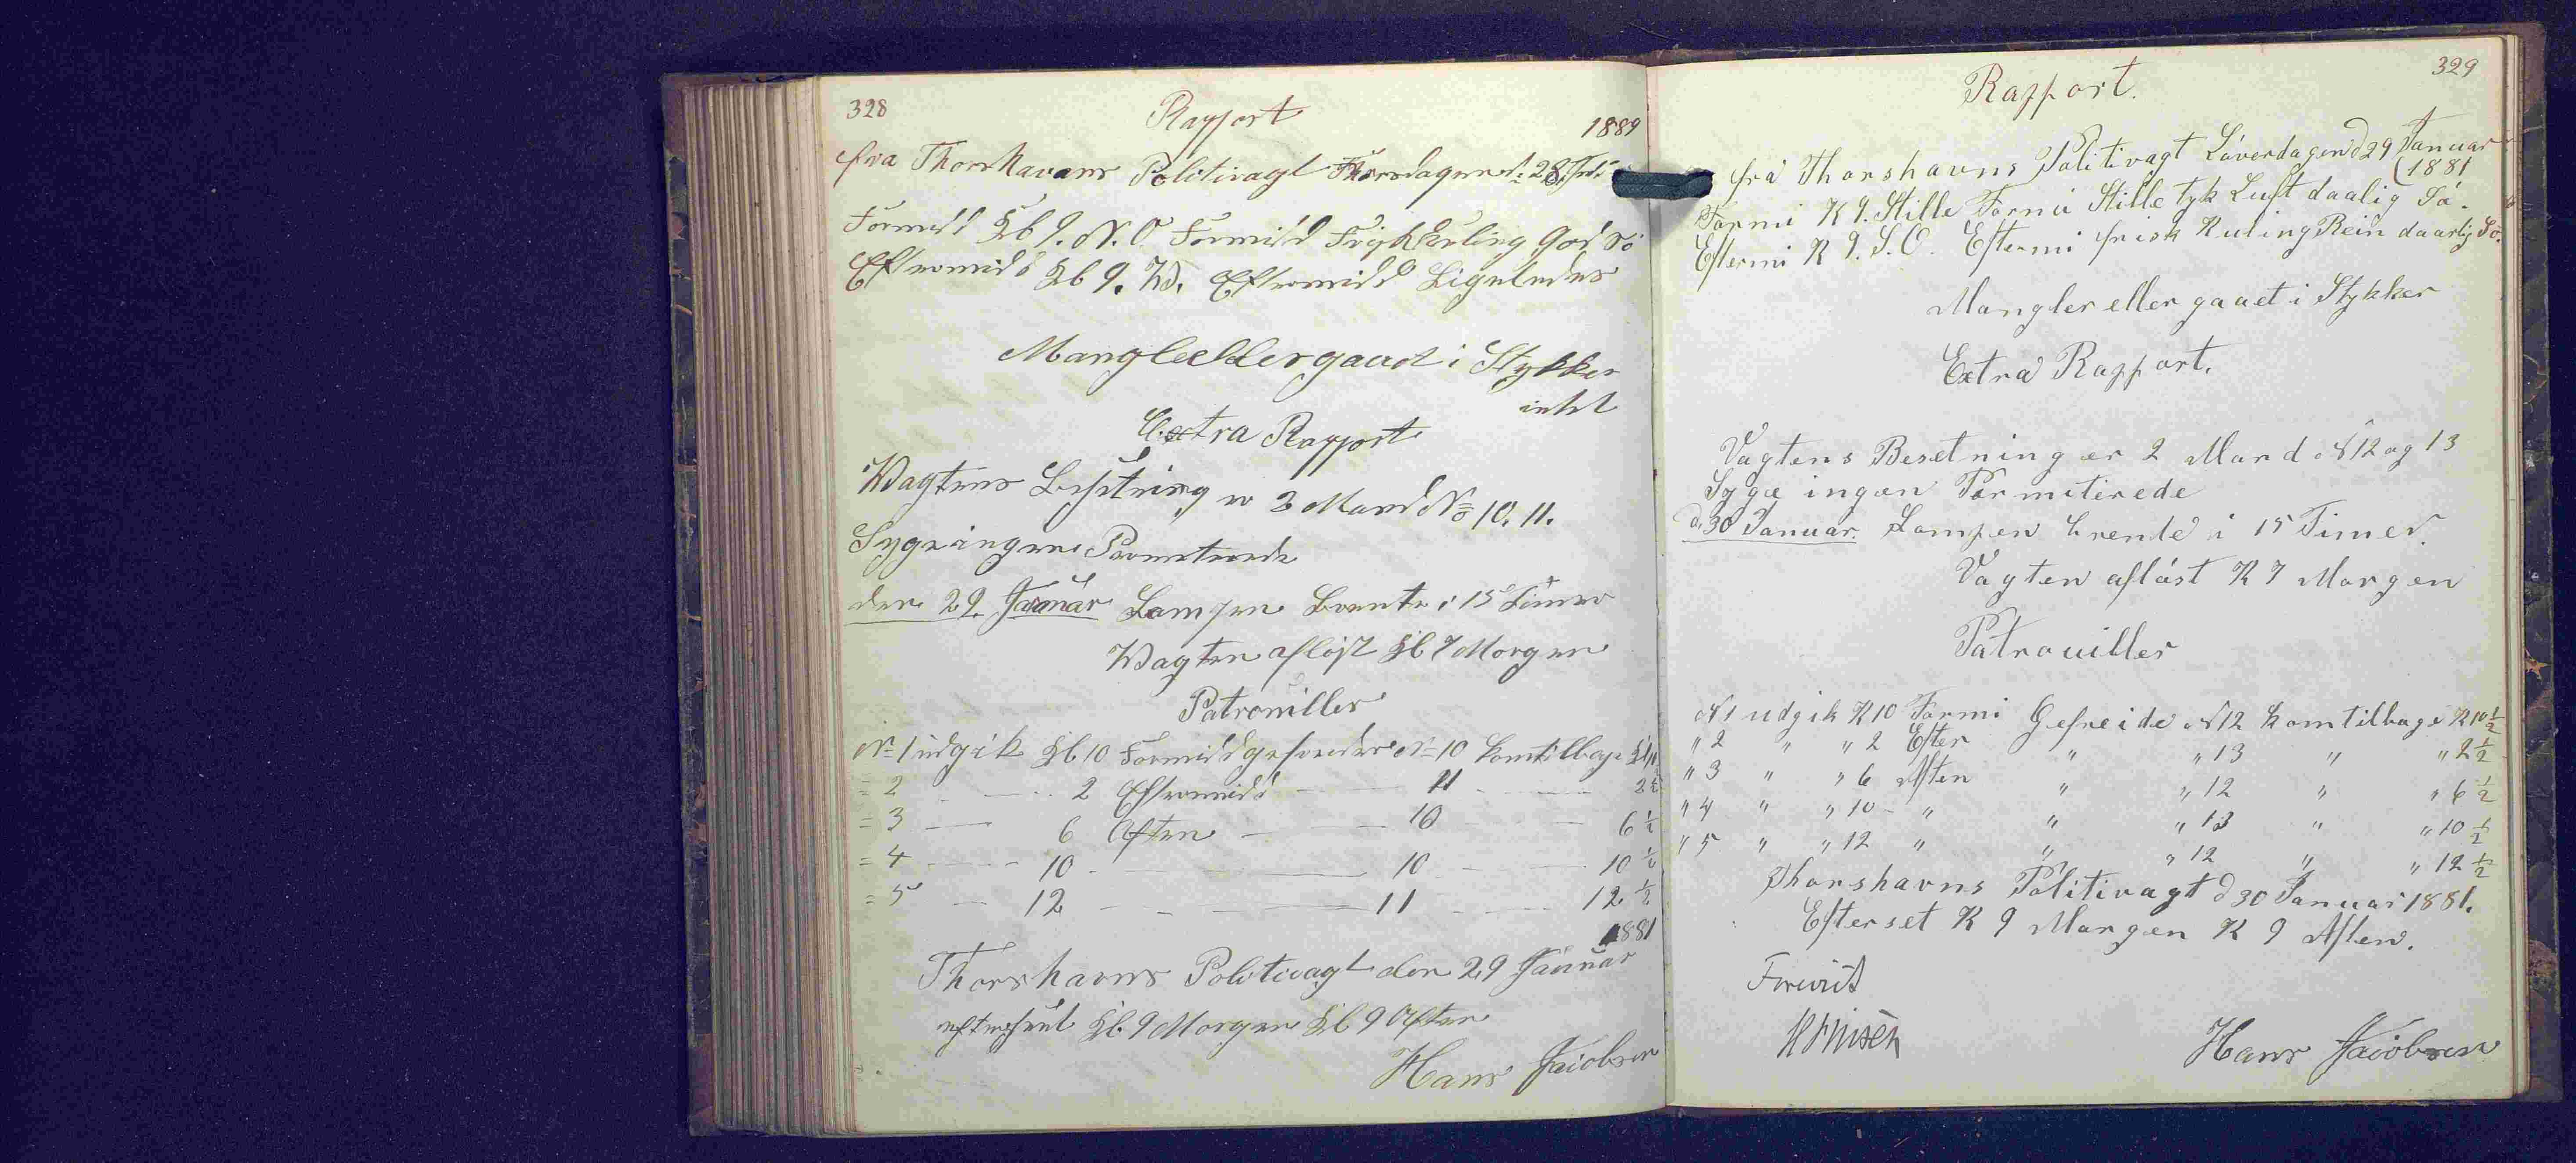 328
Rapport
1889
fra Thorshavns Politivagt Thorsdagen d. 28
Formidd Kl 9. N. O Formidd Frisk Kuling God Sö
Eftermidd Kl 9. W. Eftermidd Ligeledes
Mangle eller gaaet i Stykker
intet
Extra Rapport
Wagtens Besetning er 2 Mand No 10. 11.
Syge ingen Permeterede
den 29. Januar Lampen brente i 15 Timer
Wagten aflöst Kl 7 Morgen
Patrouiller
No 1 udgik Kl 10 Formidd gefreider No 10 kom tilbage
= 2 — 2 Eftermidd — 11 — 2 1/2
= 3 — 6 Aften — 10 — 6 1/2
= 4 — 10 — 10 — 10 1/2
= 5 — 12 — 11 — 12 1/2
1881
Thorshavns Politivagt den 29 Januar
efterseet Kl 9 Morgen Kl 9 Aften
Hans Jacobsen
329
Rapport.
frá Thorshavns Politivagt Löverdagen d 29 Januar
(1881
Formi K 9. Stille Formi Stille tyk Luft daalig Sö.
Eftermi K 9. S. O. Eftermi frisk Kuling Rein daarlig Sö.
Mangler eller gaaet i Stykker
Extra Rapport.
Vagtens Besetning er 2 Mand N 12 og 13
Syge ingen Permiterede
d. 30 Januar. Lampen brende i 15 Timer.
Vagten aflöst K 7 Morgen
Patrouiller
N 1 udgik K 10 Formi Gefreide N 12 kom tilbage K 10 1/2
" 2 " " 2 Efter " " 13 " " 2 1/2
" 3 " " 6 Aften " " 12 " " 6 1/2
" 4 " " 10 - " " " 13 " " 10 1/2
" 5 " " 12 " " " 12 " " 12 1/2
Thorshavns Politivagt d 30 Januar 1881.
Efterset K 9 Morgen K 9 Aften.
Forevist
Hans Jacobsen